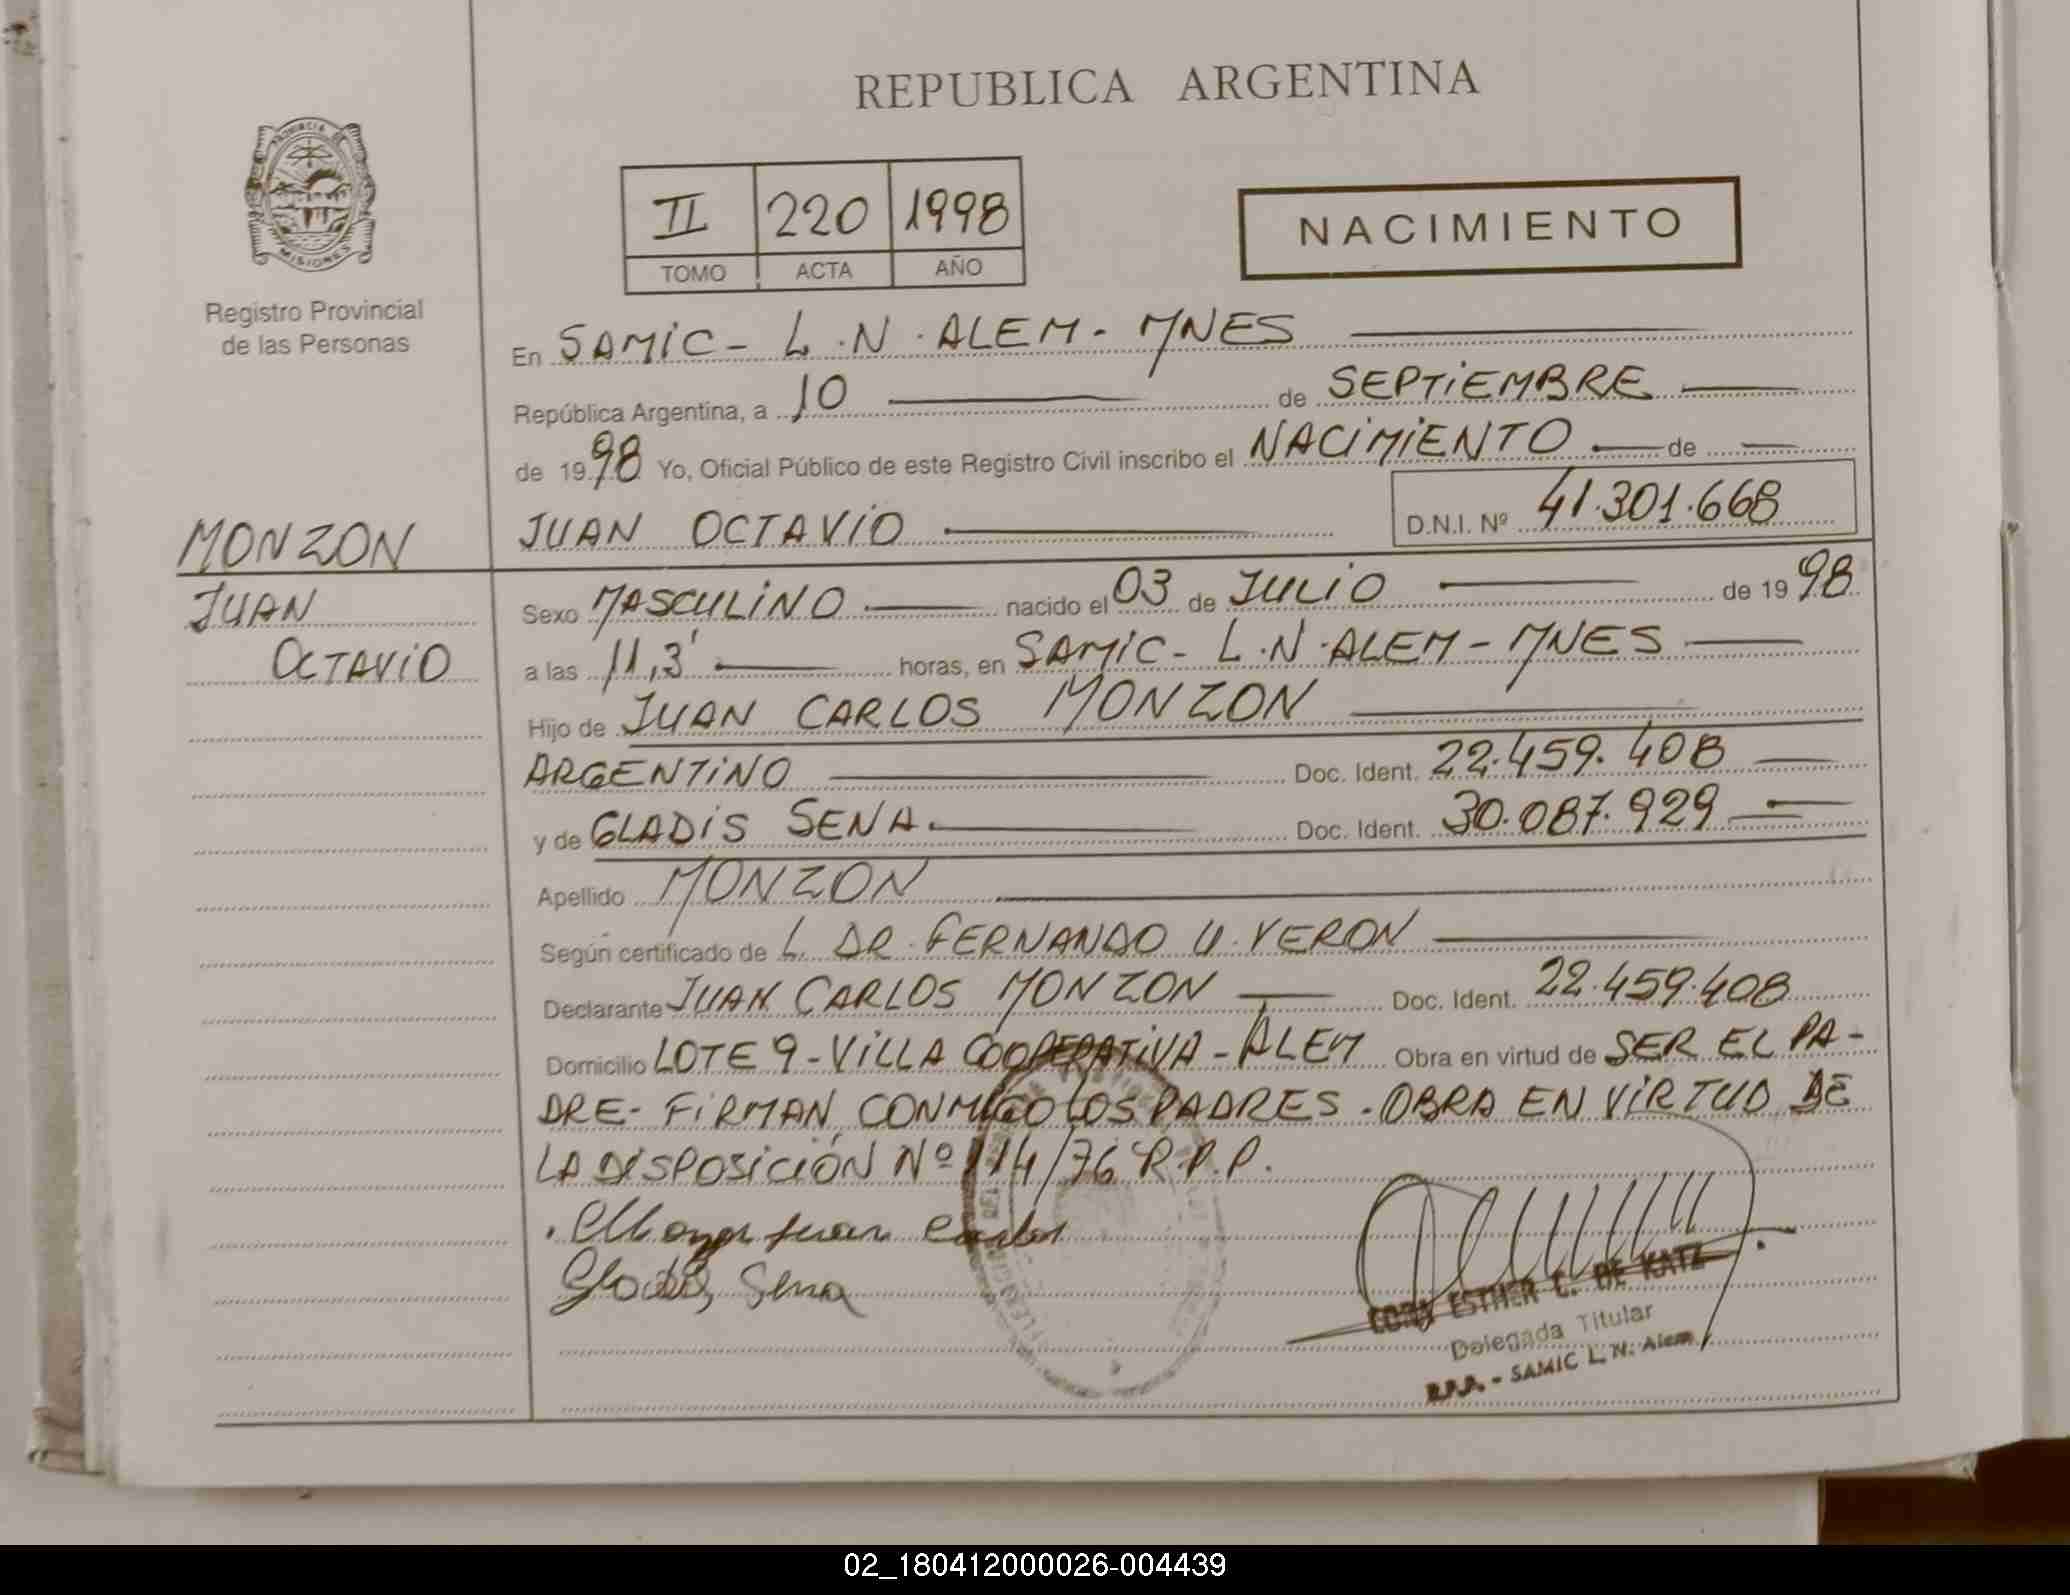 REPUBLICA ARGENTINA
PROVINCIA DE
MISIONES
Registro Provincial
de las Personas
II 220 1998
TOMO ACTA AÑO
NACIMIENTO
En SAMIC - L.N. ALEM - MNES
República Argentina, a 10 de SEPTIEMBRE
de 1998 Yo, Oficial Público de este Registro Civil inscribo el NACIMIENTO de
JUAN OCTAVIO D.N.I. Nº 41.301.668
MONZON
JUAN
OCTAVIO
Sexo MASCULINO nacido el 03 de JULIO de 1998
a las 11,3' horas, en SAMIC - L.N. ALEM - MNES
Hijo de JUAN CARLOS MONZON
ARGENTINO Doc. Ident. 22.459.408
y de GLADIS SENA. Doc. Ident. 30.087.929
Apellido MONZON
Según certificado de L. DR. FERNANDO U. VERON
Declarante JUAN CARLOS MONZON Doc. Ident. 22.459.408
Domicilio LOTE 9 - VILLA COOPERATIVA - ALEM Obra en virtud de SER EL PA-
DRE - FIRMAN CONMIGO LOS PADRES. OBRA EN VIRTUD DE
LA DISPOSICIÓN Nº 114/76 R.P.P.
Juan Carlos
Gladis, Sena
ESTHER C. DE KATZ
Delegada Titular
R.P.P. - SAMIC L. N. Alem
02_180412000026-004439